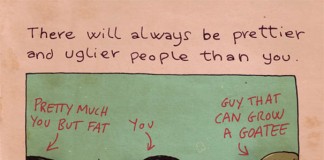 There will always be prettier
and uglier people than you.
PRETTY MUCH
YOU BUT FAT
YOU
GUY THAT
CAN GROW
A GOATEE